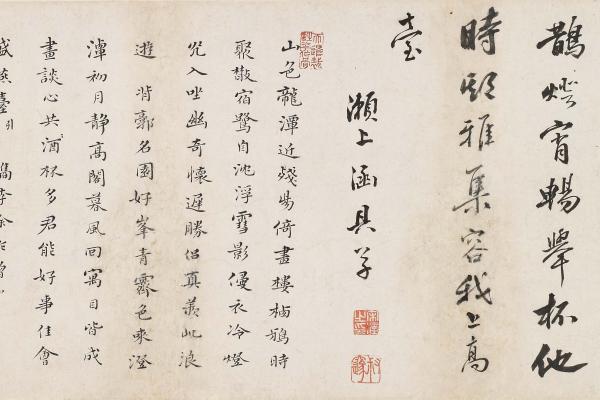 鵲燈宵暢舉杯他
時頭雅集容我上高
臺
瀨上函具草
山色龍潭近殘陽倚畫樓栖鴉時
聚散宿鷺自沈浮雪影侵衣冷燈
光入坐幽奇懷遲勝侶真羨此浪
遊 背郭名園好峯青霽色來澄
潭初月靜高閣暮風回寓目皆成
畫談心共酒杯多君能好事佳會